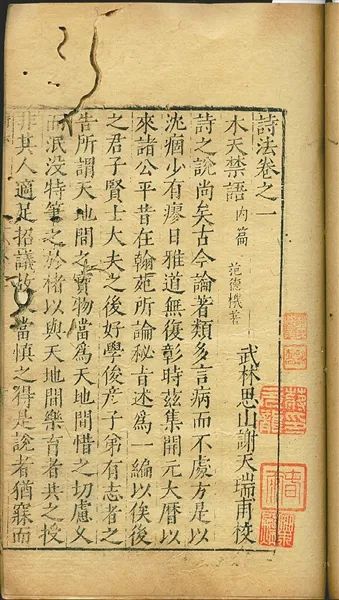 詩法卷之一
武林思山謝天瑞甫校
木天禁語 內篇 范德機著
詩之說尚矣古今論著類多言病而不處方是以
沈痼少有瘳日雅道無復彰時茲集開元大曆以
來諸公平昔在翰苑所論秘旨述為一編以俟後
之君子賢士大夫之後好學俊彥子弟有志者之
告所謂天地間之寶物當為天地間惜之切慮久
而泯沒特筆之於楮以與天地間樂育者共之授
非其人適足招議故又當慎之得是說者猶寐而